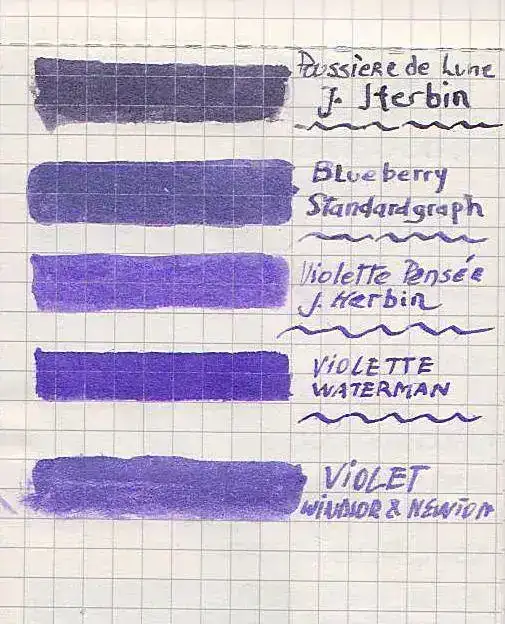 Poussiere de Lune
J. Herbin
Blueberry
Standardgraph
Violette Pensée
J. Herbin
VIOLETTE
WATERMAN
VIOLET
WINDSOR & NEWTON